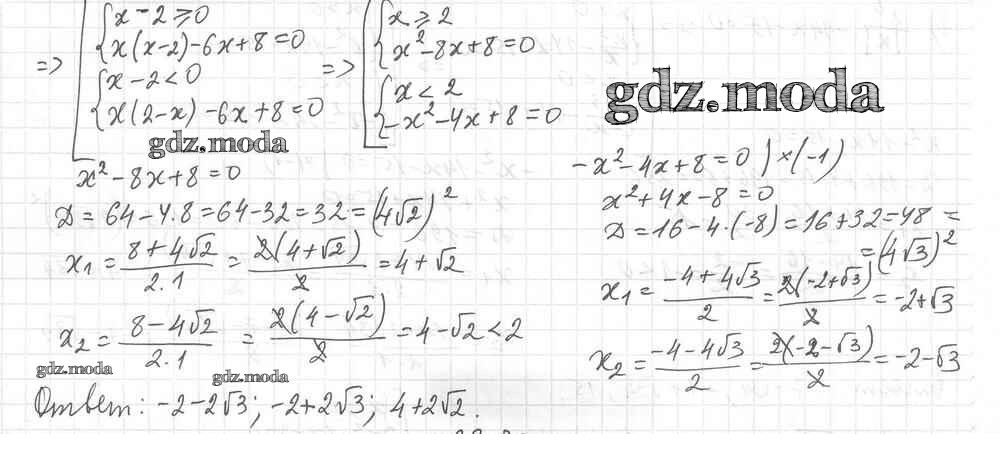 => [ { x - 2 ⩾ 0
x(x-2) - 6x + 8 = 0
{ x - 2 < 0
x(2-x) - 6x + 8 = 0
=> [ { x ⩾ 2
x² - 8x + 8 = 0
{ x < 2
-x² - 4x + 8 = 0
gdz.moda
gdz.moda
x² - 8x + 8 = 0
Д = 64 - 4·8 = 64 - 32 = 32 = (4√2)²
x₁ = (8 + 4√2)/(2·1) = 2(4 + √2)/2 = 4 + √2
x₂ = (8 - 4√2)/(2·1) = 2(4 - √2)/2 = 4 - √2 < 2
gdz.moda
gdz.moda
-x² - 4x + 8 = 0 | ×(-1)
x² + 4x - 8 = 0
Д = 16 - 4·(-8) = 16 + 32 = 48 =
= (4√3)²
x₁ = (-4 + 4√3)/2 = 2(-2 + √3)/2 = -2 + √3
x₂ = (-4 - 4√3)/2 = 2(-2 - √3)/2 = -2 - √3
Ответ: -2 - 2√3; -2 + 2√3; 4 + 2√2.